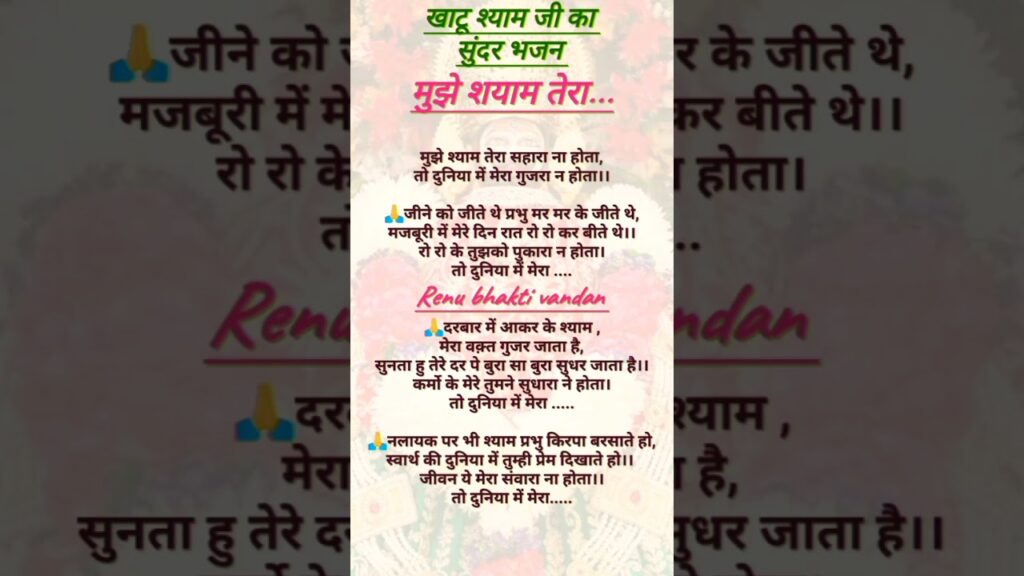 खाटू श्याम जी का
सुंदर भजन
मुझे शयाम तेरा...
मुझे श्याम तेरा सहारा ना होता,
तो दुनिया में मेरा गुजरा न होता।।
🙏जीने को जीते थे प्रभु मर मर के जीते थे,
मजबूरी में मेरे दिन रात रो रो कर बीते थे।।
रो रो के तुझको पुकारा न होता।
तो दुनिया में मेरा ....
Renu bhakti vandan
🙏दरबार में आकर के श्याम ,
मेरा वक़्त गुजर जाता है,
सुनता हु तेरे दर पे बुरा सा बुरा सुधर जाता है।।
कर्मो के मेरे तुमने सुधारा ने होता।
तो दुनिया में मेरा .....
🙏नलायक पर भी श्याम प्रभु किरपा बरसाते हो,
स्वार्थ की दुनिया में तुम्ही प्रेम दिखाते हो।।
जीवन ये मेरा संवारा ना होता।।
तो दुनिया में मेरा.....